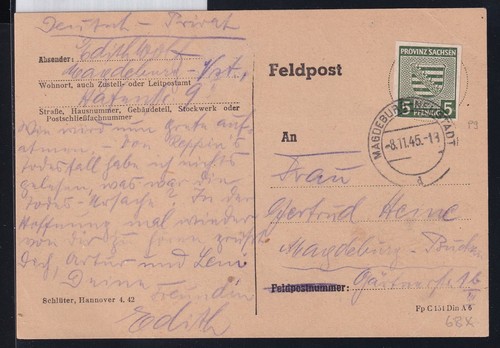 Deutsch – Privat
Absender: Edith
Magdeburg-
Wohnort, auch Zustell- oder Leitpostamt
Hafenstr. 9
Straße, Hausnummer, Gebäudeteil, Stockwerk oder
Postschließfachnummer
wird nun Grete auf-
atmen. – Von
Todesfall habe ich nichts
gelesen, was war die
Todes-Ursache? In der
Hoffnung mal wieder
von Dir zu hören grüßt
Dich, Artur und Leni
Deine Freundin
Edith
Schlüter, Hannover 4. 42
Feldpost
An
Frau
Gertrud Heine
Magdeburg-Buckau
Feldpostnummer:
Fp C 154 Din A 6
68x.
PROVINZ SACHSEN
5 PFENNIG 5
MAGDEBURG-NEUSTADT
-8.11.45.-18
d